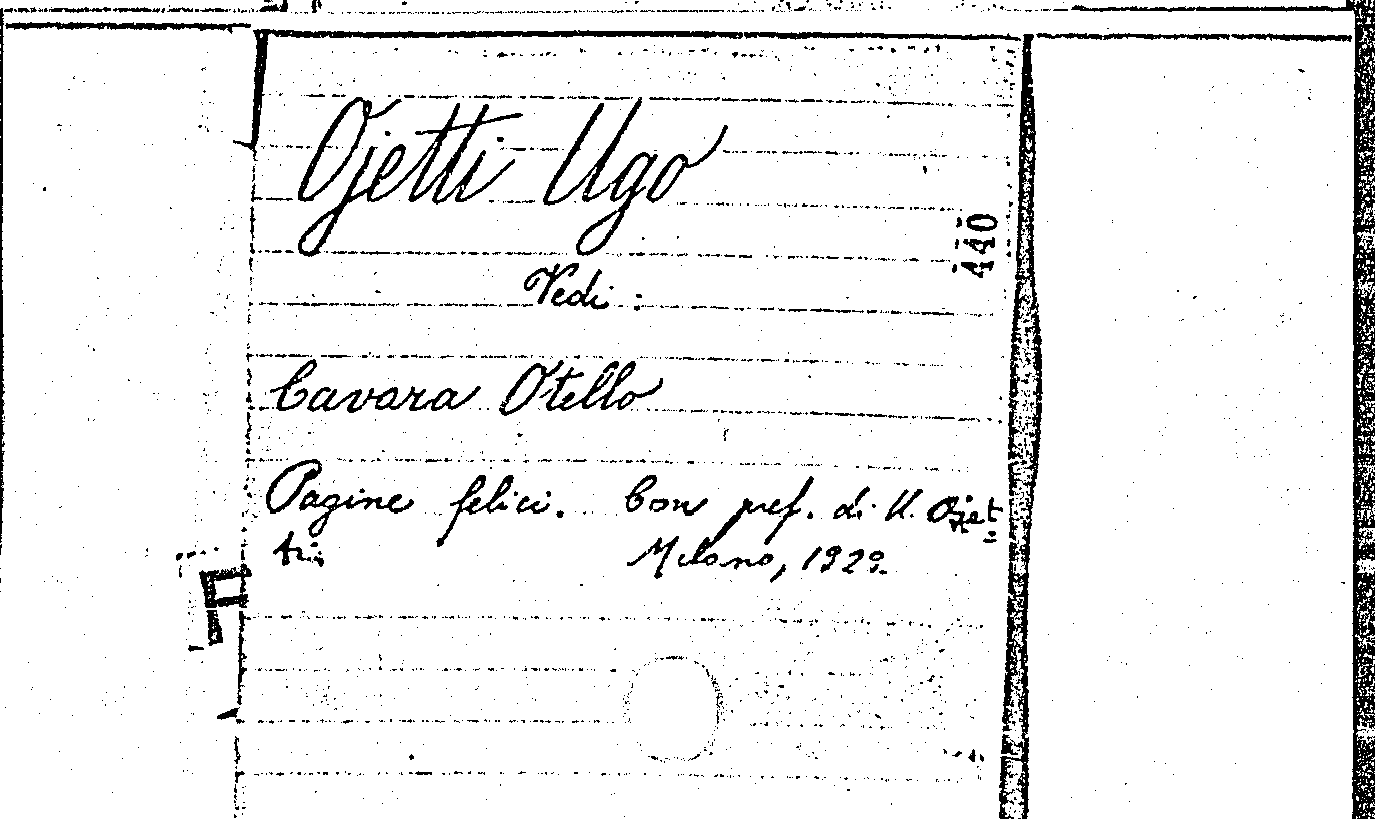 Ojetti Ugo
440
Vedi :
Cavara Otello
Pagine felici. Con pref. di U. Ojet-
ti.
Milano, 1929.